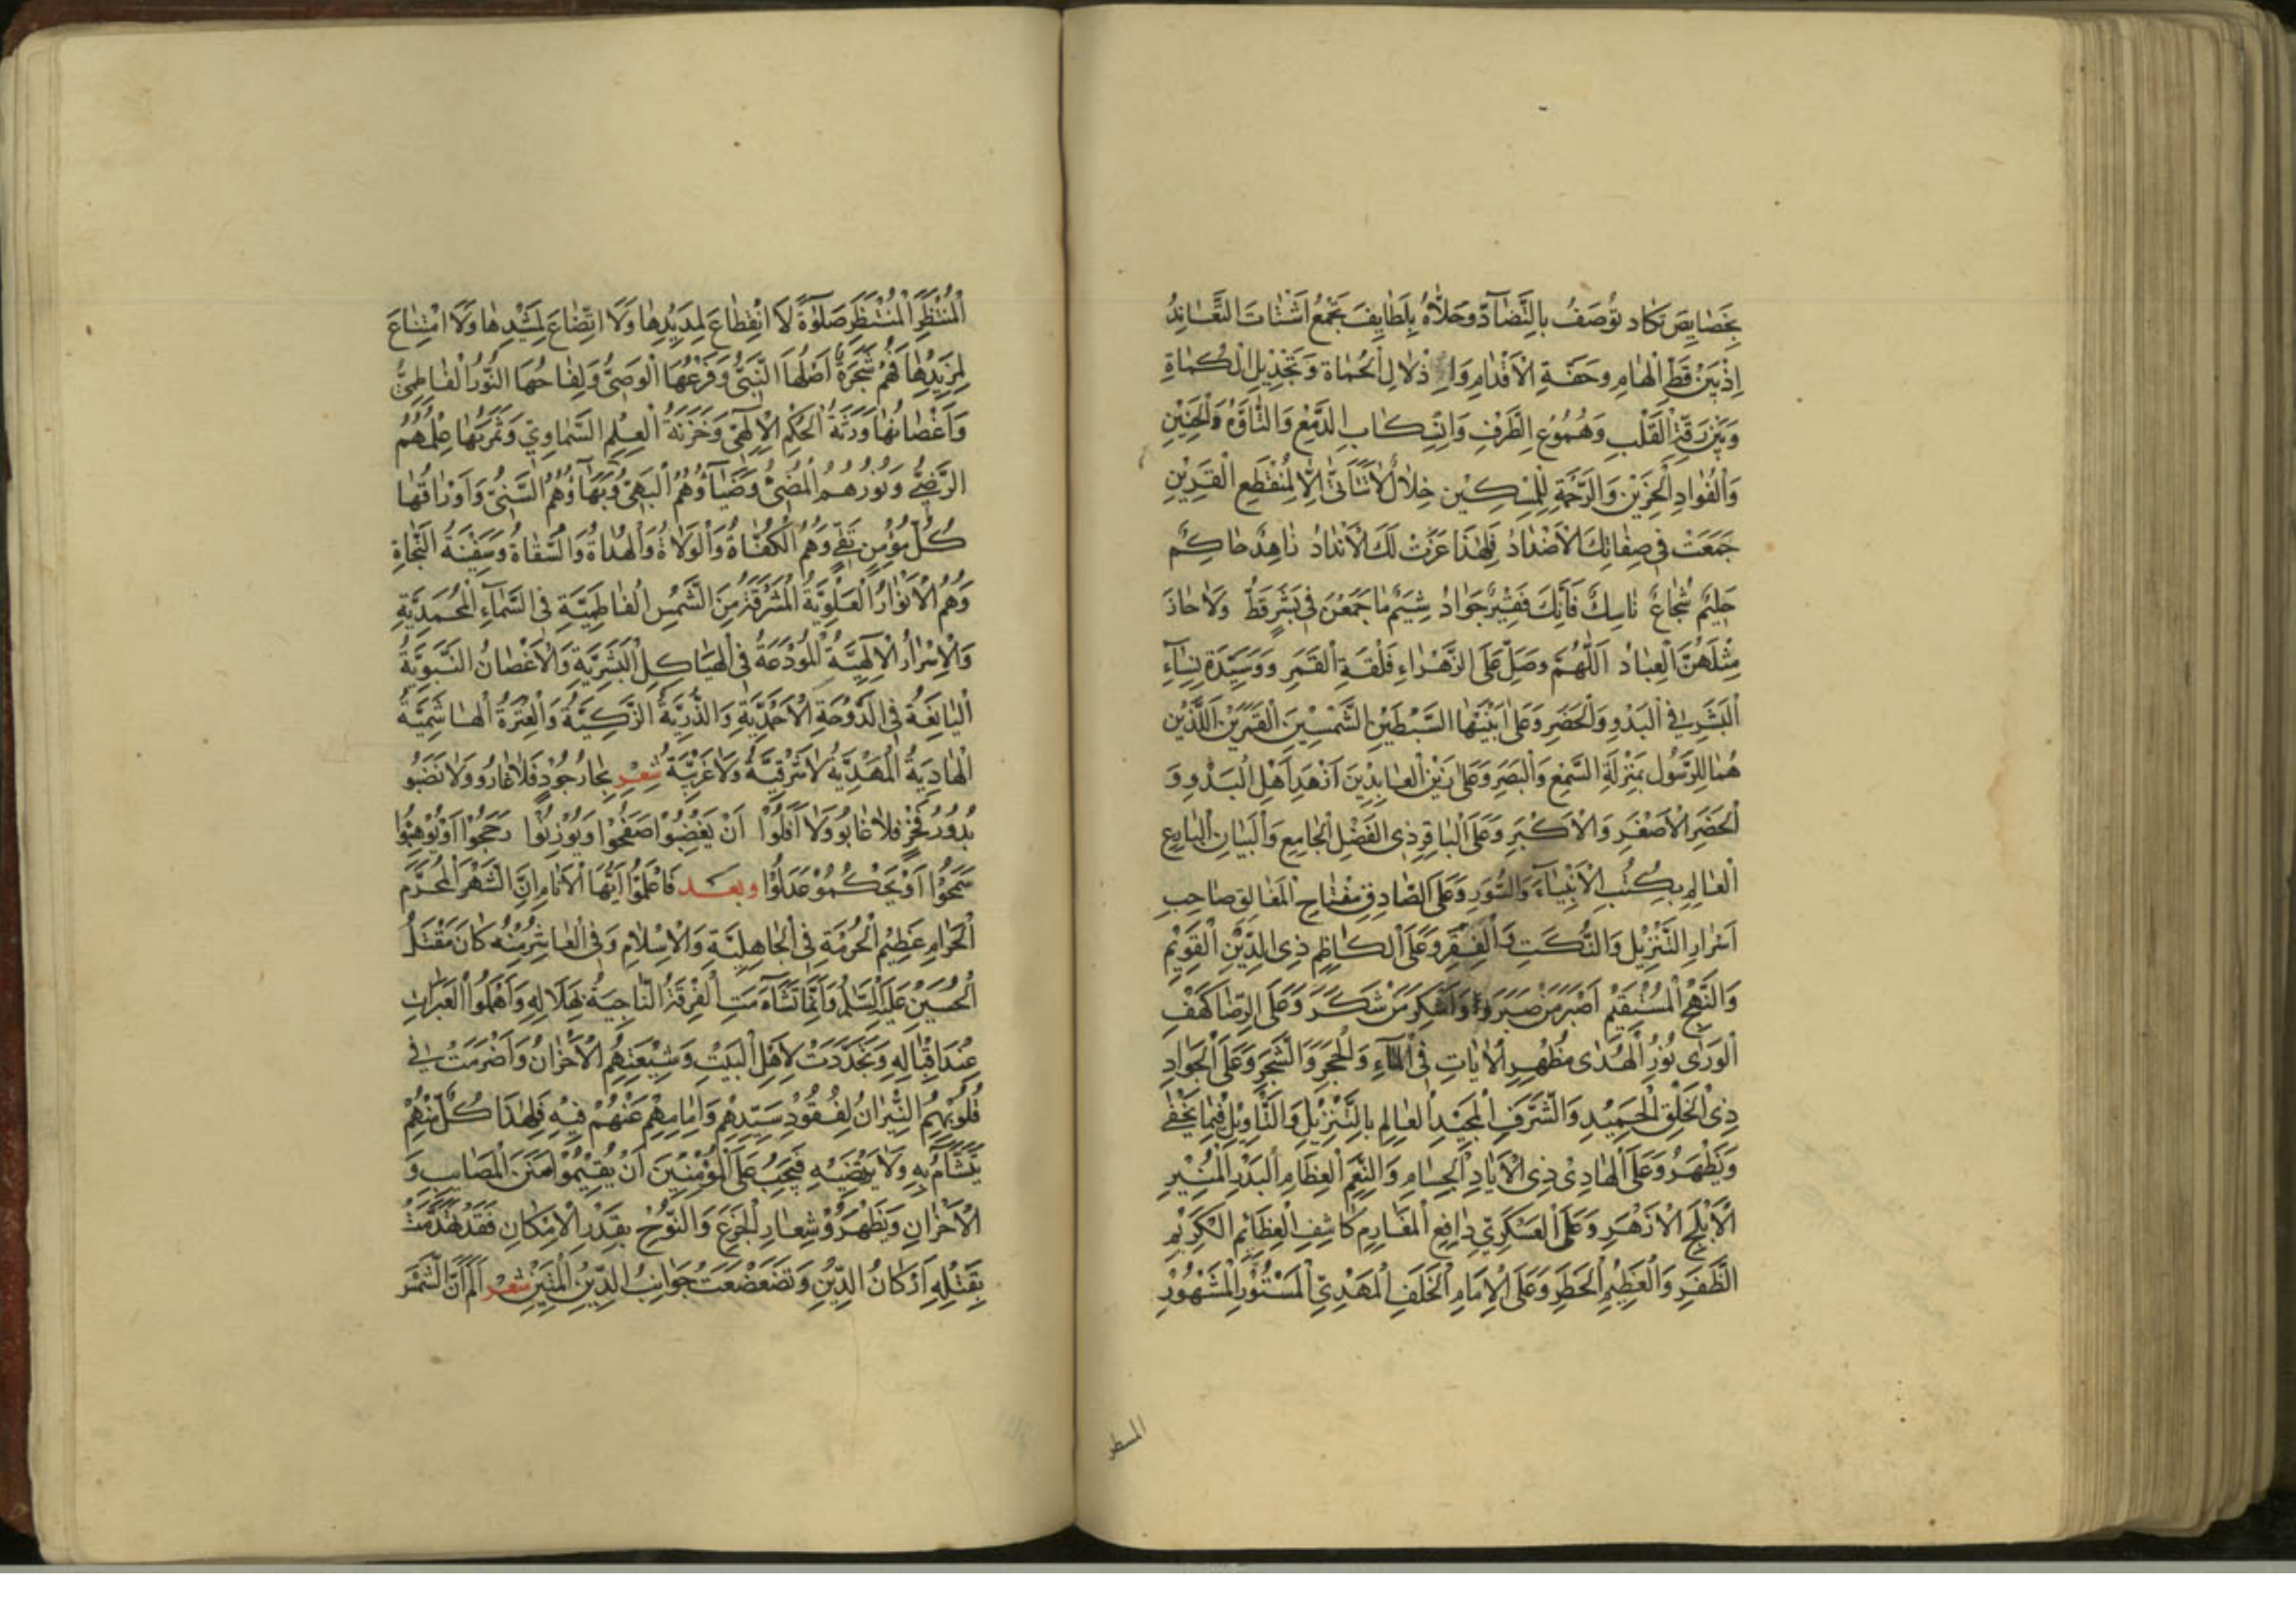 بِخَصٰايِصَ تَكٰاد تُوصَفُ بِالتَّضٰآدِّ وَحَلاّٰهُ بِلَطٰايِفَ تَجْمَعُ اَشْتٰاتَ التَّعٰانُدِ
اِذْ بَيْنَ قَطِّ الْهٰامِ وَ الْاَقْدٰامِ وَ اِذْلٰالِ الْحُمٰاةِ وَتَجْدِيْلِ الْكُمٰاةِ
وَبَيْنَ رِقَّةِ الْقَلْبِ وَهُمُوْعِ الطَّرْفِ وَانْسِكٰابِ الدَّمْعِ وَالتَّاَوُّهِ وَالْحَنِيْنِ
وَالْفُوٰادِ الْحَزِيْنِ وَالرَّحْمَةِ لِلْمِسْكِيْنِ خِلٰالٌ لٰا تَتَاَتّٰى اِلّٰا لِمُنْقَطِعِ الْقَرِيْنِ
جَمَعَتْ فِى صِفٰاتِكَ الْاَضْدٰادُ فَلِهٰذٰا عَزَّتْ لَكَ الْاَنْدٰادُ زٰاهِدٌ حٰاكِمٌ
حَلِيْمٌ شُجٰاعٌ نٰاسِكٌ فٰاتِكٌ فَقِيْرٌ جَوٰادُ شِيَمٌ مٰا جُمِعْنَ فِى بَشَرٍ قَطُّ وَلٰا حٰازَ
مِثْلَهُنَّ الْعِبٰادُ اَللّٰهُمَّ وَصَلِّ عَلَى الزَّهْرٰاءِ فَلْقَةِ الْقَمَرِ وَ سَيِّدَةِ نِسٰآءِ
الْبَشَرِ فِى الْبَدْوِ وَالْحَضَرِ وَعَلٰى ابْنَيْهٰا السِّبْطَيْنِ الشَّمْسَيْنِ الْقَمَرَيْنِ اللَّذَيْنِ
هُمٰا لِلرَّسُوْلِ بِمَنْزِلَةِ السَّمْعِ وَالْبَصَرِ وَعَلٰى زَيْنِ الْعٰابِدِيْنَ اَزْهَدِ اَهْلِ الْبَدْوِ وَ
الْحَضَرِ الْاَصْغَرِ وَالْاَكْبَرِ وَعَلَى الْبٰاقِرِ ذِى الْفَضْلِ الْجٰامِعِ وَالْبَيٰانِ الْبٰارِعِ
الْعٰالِمِ بِكُتُبِ الْاَنْبِيٰآءِ وَالسُّوَرِ وَعَلَى الصّٰادِقِ مِفْتٰاحِ الْمَغٰالِقِ صٰاحِبِ
اَسْرٰارِ التَّنْزِيْلِ وَالنُّكَتِ وَالْفِقَرِ وَعَلَى الْكٰاظِمِ ذِى الدِّيْنِ الْقَوِيْمِ
وَالنَّهْجِ الْمُسْتَقِيْمِ اَصْبَرِ مَنْ صَبَرَ وَاَشْكَرِ مَنْ شَكَرَ وَعَلَى الرِّضٰا كَهْفِ
الْوَرٰى نُوْرِ الْهُدٰى مُظْهِرِ الْاٰيٰاتِ فِى الْمٰآءِ وَالْحَجَرِ وَالشَّجَرِ وَعَلَى الْجَوٰادِ
ذِى الْخُلُقِ الْحَمِيْدِ وَالشَّرَفِ الْمَجِيْدِ الْعٰالِمِ بِالتَّنْزِيْلِ وَالتَّاْوِيْلِ فِيْمٰا يَخْفٰى
وَيَظْهَرُ وَعَلَى الْهٰادِىْ ذِى الْاَيٰادِ الْجِسٰامِ وَالنِّعَمِ الْعِظٰامِ الْبَدْرِ الْمُنِيْرِ
الْاَبْلَجِ الْاَزْهَرِ وَعَلَى الْعَسْكَرِيِّ دٰافِعِ الْمَغٰارِمِ كٰاشِفِ الْعِظٰائِمِ الْكَرِيْمِ
الظَّفَرِ وَالْعَظِيْمِ الْخَطَرِ وَعَلَى الْاِمٰامِ الْخَلَفِ الْمَهْدِيِّ الْمَسْتُوْرِ الْمَشْهُوْرِ
الْمُنْتَظِرِ الْمُنْتَظَرِ صَلٰوةً لَا انْقِطٰاعَ لِمَدِيْدِهٰا وَلَا اتِّضٰاعَ لِمَشِيْدِهٰا وَلَا امْتِنٰاعَ
لِمَزِيْدِهٰا فَهُمْ شَجَرَةٌ اَصْلُهَا النَّبِيُّ وَفَرْعُهَا الْوَصِيُّ وَلِقٰاحُهَا النُّوْرُ الْفٰاطِمِيُّ
وَاَغْصٰانُهٰا وَرَثَةُ الْحُكْمِ الْاِلٰهِيِّ وَخَزَنَةُ الْعِلْمِ السَّمٰاوِيِّ وَثَمَرَتُهٰا عِلْمُهُمُ
الرَّضِيُّ وَنُوْرُهُمُ الْمُضِىُّ وَضِيٰآؤُهُمُ الْبَهِىُّ وَبَهٰآؤُهُمُ السَّنِىُّ وَاَوْرٰاقُهٰا
كُلُّ مُؤْمِنٍ تَقِىٍّ وَهُمُ الْكُفٰاةُ وَالْوُلٰاةُ وَالْهُدٰاةُ وَالسُّقٰاةُ وَسَفِيْنَةُ النَّجٰاةِ
وَهُمُ الْاَنْوٰارُ الْعَلَوِيَّةُ الْمُشْرِقَةُ مِنَ الشَّمْسِ الْفٰاطِمِيَّةِ فِى السَّمٰآءِ الْمُحَمَّدِيَّةِ
وَالْاَسْرٰارُ الْاِلٰهِيَّةُ الْمُوْدَعَةُ فِى الْهَيٰاكِلِ الْبَشَرِيَّةِ وَالْاَغْصٰانُ النَّبَوِيَّةُ
الْيٰانِعَةُ فِى الدَّوْحَةِ الْاَحْمَدِيَّةِ وَالذُّرِّيَّةُ الزَّكِيَّةُ وَالْعِتْرَةُ الْهٰاشِمِيَّةُ
الْهٰادِيَةُ الْمَهْدِيَّةُ لٰا شَرْقِيَّةٌ وَلٰا غَرْبِيَّةٌ شعر بِحٰارُ جُوْدٍ فَلٰا غٰارُو وَلٰا نَضَبُو
بُدُوْرُ فَخْرٍ فَلٰا غٰابُو وَلٰا اَفَلُوْا اَنْ يَغْضِبُوْا صَفَحُوْا وَيُوْزِنُوْا رَجَحُوْا اَوْ يُوْهِبُوْا
سَمَحُوْا اَوْ يَحْكُمُوْ عَدَلُوْا وبعد فَاعْلَمُوْا اَيُّهَا الْاَنٰامِ اِنَّ الشَّهْرَ الْمُحَرَّمَ
الْحَرٰامِ عَظِيْمُ الْحُرْمَةِ فِى الْجٰاهِلِيَّةِ وَالْاِسْلٰامِ وَفِى الْعٰاشِرِ مِنْهُ كٰانَ مَقْتَلُ
الْحُسَيْنِ عَلَيْهِ السَّلٰمُ وَاِنَّمٰا تَشٰآءَمَتِ الْفِرْقَةُ النّٰاجِيَةُ بِهَلَالِهِ وَاَهْمَلُوا الْعَبَرٰاتِ
عِنْدَ اِقْبٰالِهِ وَتَجَدَّدَتْ لِاَهْلِ الْبَيْتِ وَشِيْعَتِهِمُ الْاَحْزٰانُ وَاَضْرَمَتْ فِى
قُلُوْبِهِمُ النِّيْرٰانُ لِفُقُوْدِ سَيِّدِهِمْ وَاِمٰامِهِمْ عَنْهُمْ فِيْهِ فَلِهٰذٰا كُلٌّ مِنْهُمْ
يَتَشَآمُ بِهِ وَلٰا يَرْتَضِيْهِ فَيَجِبُ عَلَى الْمُؤْمِنِيْنَ اَنْ يُقِيْمُوْا سُنَنَ الْمَصٰائِبِ وَ
الْاَحْزٰانِ وَيَظْهَرُوْ شِعٰارِ الْجَزَعِ وَالنَّوْحِ بِقَدْرِ الْاِمْكٰانِ فَقَدْ هُدِّمَتْ
بِقَتْلِهِ اَرْكٰانُ الدِّيْنِ وَتَضَعْضَعَتْ جَوٰانِبُ الدِّيْنِ الْمَتِيْنِ شعر اَلَمْ اَنَّ الشَّمْسَ